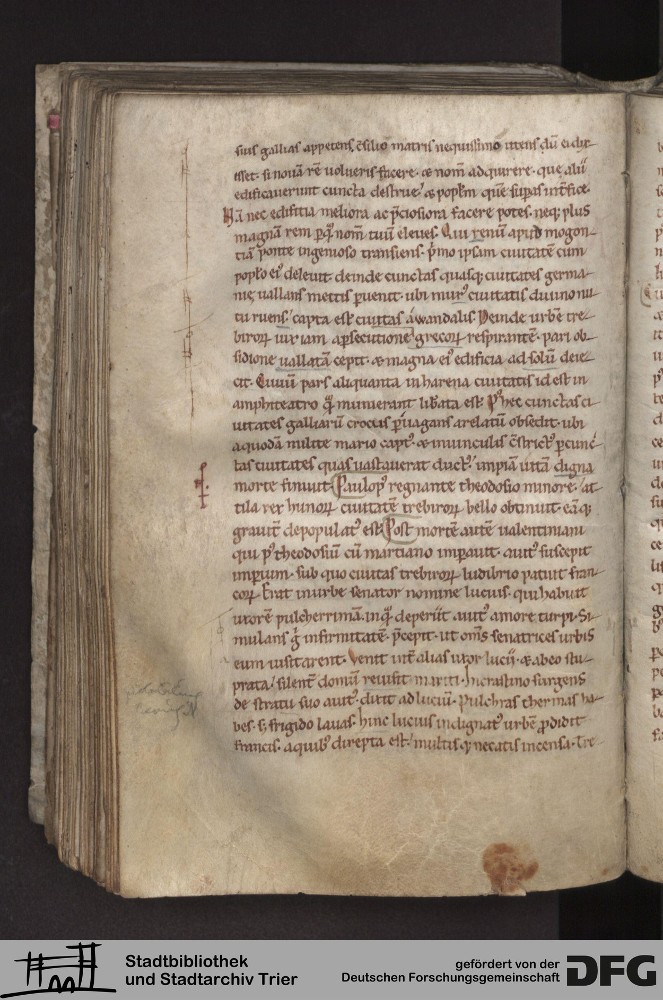 suis gallias appetens c̄silio matris nequissimo utens dū ei dix-
isset. si nouā rē uolueris facere. & nom̄ adquirere. que alii
edificauerunt cuncta destrue. & popłm quē supas int̄fice.
Nā nec edifitia meliora ac p̄ciosiora facere potes. neq; plus
magnā rem p̱ q̄ nom̄ tuū eleues. Qui renū apud mogon-
tiā ponte ingenioso transiens. p̄mo ipsam ciuitatē cum
popło ei' deleuit. deinde cunctas quasq; ciuitates germa-
nię uallans mettis p̱uenit. ubi mur' ciuitatis diuino nu-
tu ruens/ capta est ciuitas a wandalis. Deinde urbē tre-
biroꝝ uix iam a p̱secutione grecoꝝ respirantē. pari ob-
sidione uallatā cepit. & magna ei' edificia ad solū deie-
cit. Ciuiū pars aliquanta in harena ciuitatis id est in
amphiteatro q̄ munierant lib̄ata est. P' hec cunctas ci-
uitates galliarū crocus p̱uagans arelatū obsedit. ubi
a quodā milite mario capt'. & in uinculis c̄strict' p̱ cunc-
tas ciuitates quas uastauerat duct'/ impiā uitā digna
morte finiuit. Paulo p' regnante theodosio minore. at-
tila rex hunoꝝ ciuitatē treberoꝝ bello obtinuit. eāq;
grauit̄ depopulat' est. Post mortē autē ualentiniani
qui p' theodosiū cū martiano imp̱auit. auit' suscepit
imp̱ium. sub quo ciuitas trebiroꝝ ludibrio patuit fran-
coꝝ. Erat in urbe senator nomine lucius. qui habuit
uxorē pulcherrimā. in q̄ deperiit auit' amore turpi. Si-
mulans g̊ infirmitatē. p̄cepit. ut om̄s senatrices urbis
eum uisitarent. Venit int̄ alias uxor lucii. & ab eo stu-
prata/ silent̄ domū reuisit mariti. In crastino surgens
de stratu suo auit'. dixit ad luciū. Pulchras thermas ha-
bes. s; frigido lauas. hinc lucius indignat' urbē p̱didit
francis. a quib' direpta est. multis q; necatis incensa. Tre-
Stadtbibliothek
und Stadtarchiv Trier
gefördert von der
Deutschen Forschungsgemeinschaft
DFG